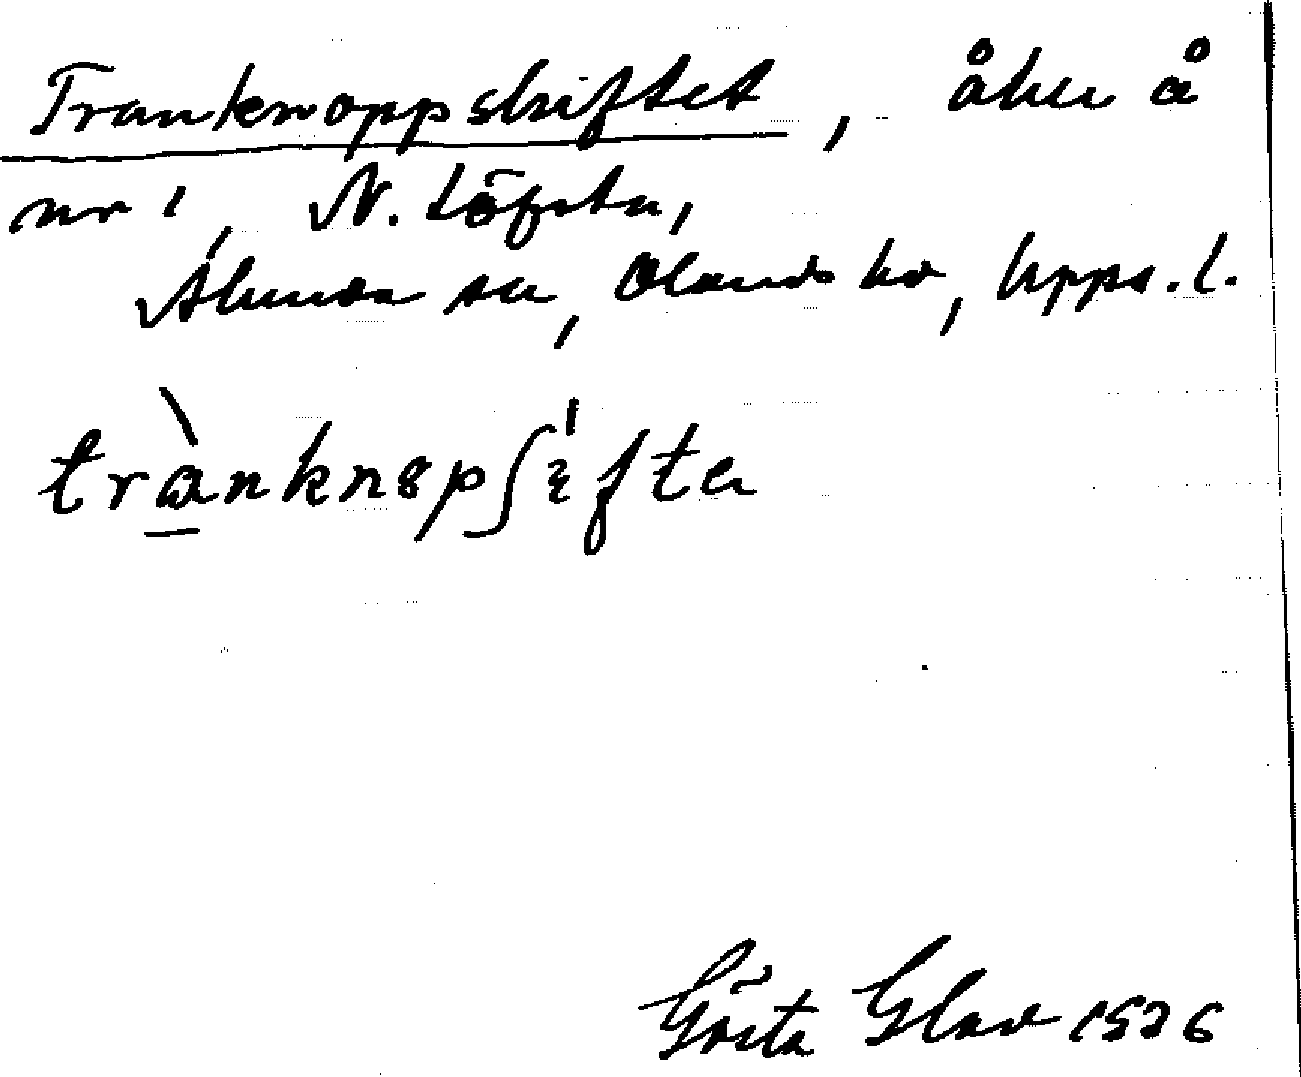 Tranknoppskiftet, åker å
nr 1, N. Löfsta,
Alunda sn, Olands hd, Upps. l.
trànknopʃifte
Gösta Glad 1936